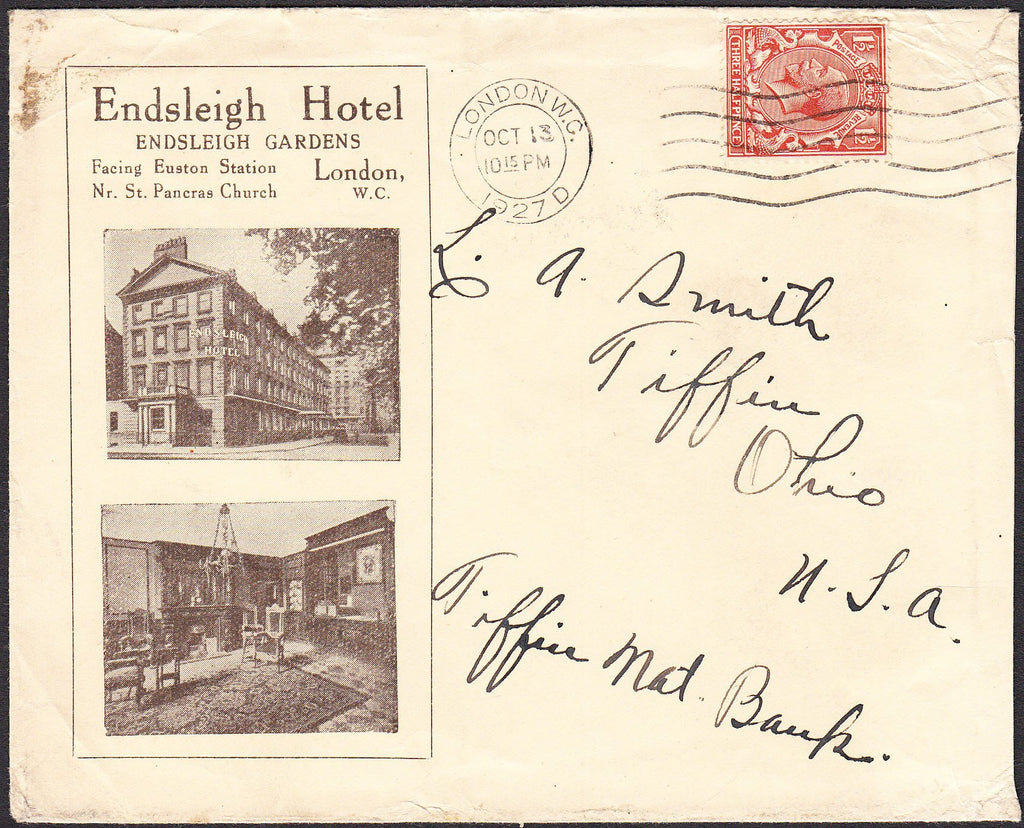 Endsleigh Hotel
ENDSLEIGH GARDENS
Facing Euston Station
Nr. St. Pancras Church
London,
W.C.
ENDSLEIGH
HOTEL
LONDON W.C.
OCT 13
10 15 PM
1927 D
POSTAGE
REVENUE
1½
1½
THREE HALFPENCE
L. A. Smith
Tiffin
Ohio
U. S. A.
Tiffin Nat. Bank.